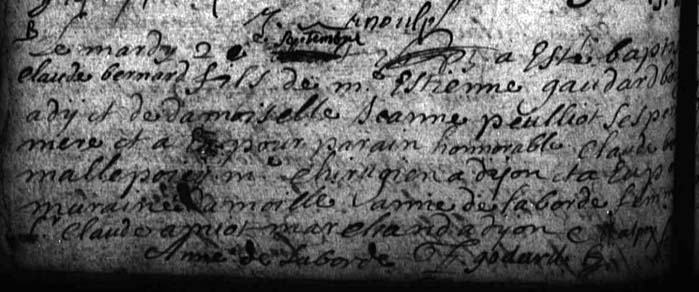 B
Le mardy 2e de Septembre a Esté bapti
Claude bernard fils de me Estienne gaudard bo
a dij et de damoiselle Jeanne peulliot ses per
mere et a Eu pour parain honnorable Claude b
mallepoy me chirugien a dijon et a Eu p
maraine damoiselle anne de laborde fem
Claude amiot marchand a dyon
Anne de Laborde godard